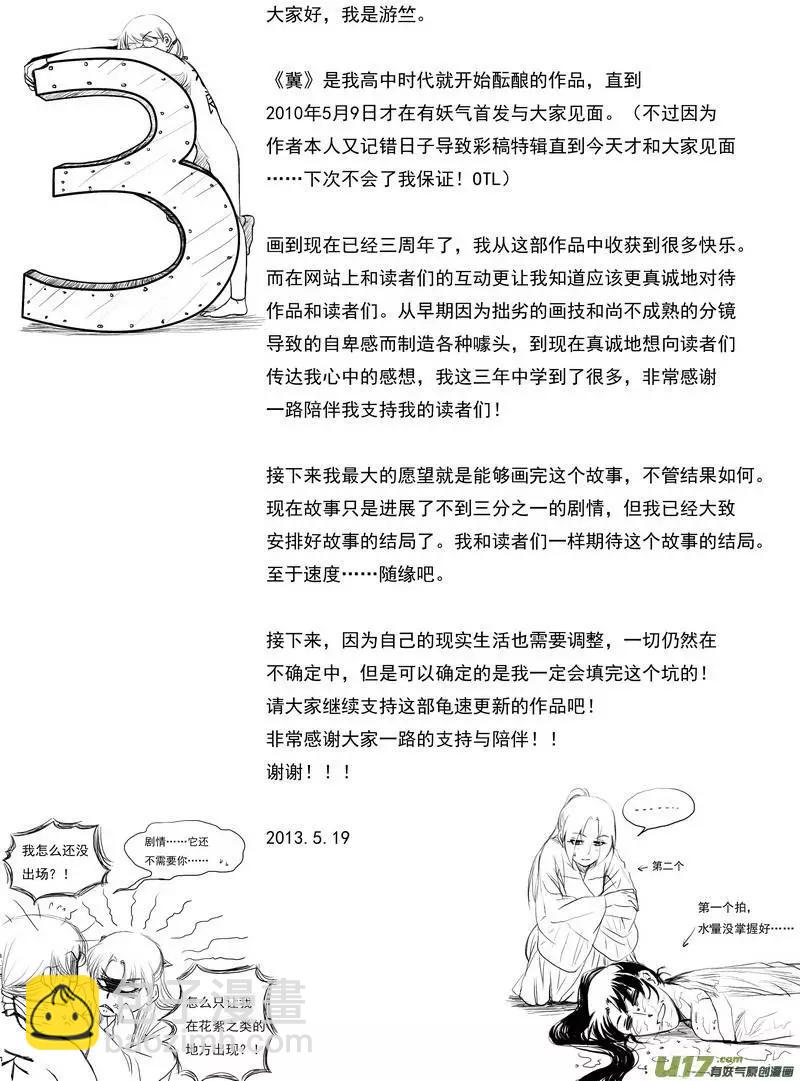 大家好，我是游竺。
《冀》是我高中时代就开始酝酿的作品，直到
2010年5月9日才在有妖气首发与大家见面。（不过因为
作者本人又记错日子导致彩稿特辑直到今天才和大家见面
……下次不会了我保证！OTL）
画到现在已经三周年了，我从这部作品中收获到很多快乐。
而在网站上和读者们的互动更让我知道应该更真诚地对待
作品和读者们。从早期因为拙劣的画技和尚不成熟的分镜
导致的自卑感而制造各种噱头，到现在真诚地想向读者们
传达我心中的感想，我这三年中学到了很多，非常感谢
一路陪伴我支持我的读者们！
接下来我最大的愿望就是能够画完这个故事，不管结果如何。
现在故事只是进展了不到三分之一的剧情，但我已经大致
安排好故事的结局了。我和读者们一样期待这个故事的结局。
至于速度……随缘吧。
接下来，因为自己的现实生活也需要调整，一切仍然在
不确定中，但是可以确定的是我一定会填完这个坑的！
请大家继续支持这部龟速更新的作品吧！
非常感谢大家一路的支持与陪伴！！
谢谢！！！
2013.5.19
3
我怎么还没
出场？！
剧情……它还
不需要你……
怎么只让我
在花絮之类的
地方出现？！
…………
第二个
第一个拍，
水量没掌握好……
包子漫畫
baozimh.com
U17.com
有妖气原创漫画